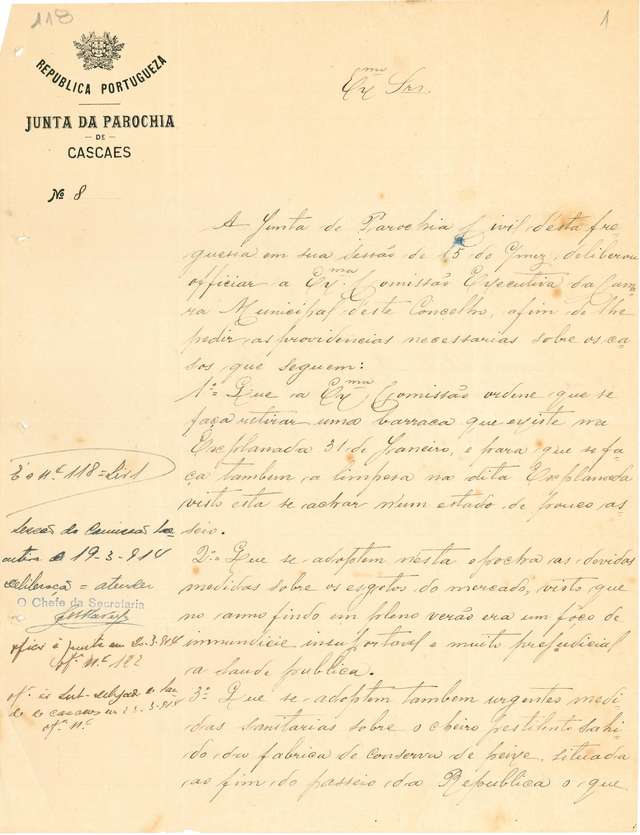 118
1
REPUBLICA PORTUGUEZA
JUNTA DA PAROCHIA
DE
CASCAES
Nº 8
Exmo Srs.
A Junta de Parochia Civil desta fre
guesia em sua sessão de 15 do Cmez, deliberou
officiar a Exma. Comissão Executiva da Cama
ra Municipal deste Concelho, afim de lhe
pedir, as providencias necessarias sobre os ca-
sos que seguem:
1º Que a Exma Comissão ordene que se
faça retirar uma barraca que existe na
Explanada 31 de Janeiro, e para que se fa
ça tambem a limpesa na dita Explanada
visto esta se achar n'um estado de pouco as-
seio.
2º Que se adoptem nesta epocha as devidas
medidas sobre os esgotos do mercado, visto que
no anno findo em pleno verão era um fóco de
immundicie insuportavel e muito prejudicial
a saude publica.
3º Que se adoptem tambem urgentes medi
das sanitarias sobre o cheiro pestilento sahi-
do da fabrica de conserva de peixe, situada
ao fim do passeio da Republica o que
E o nº 118 = Liv 1
Sessão da Comissão
de 19-3-914
deliberação = atender
O Chefe da Secretaria
á Junta em 20-3-914
ofº nº 122
de cascaes em 23-3-914
ofº nº